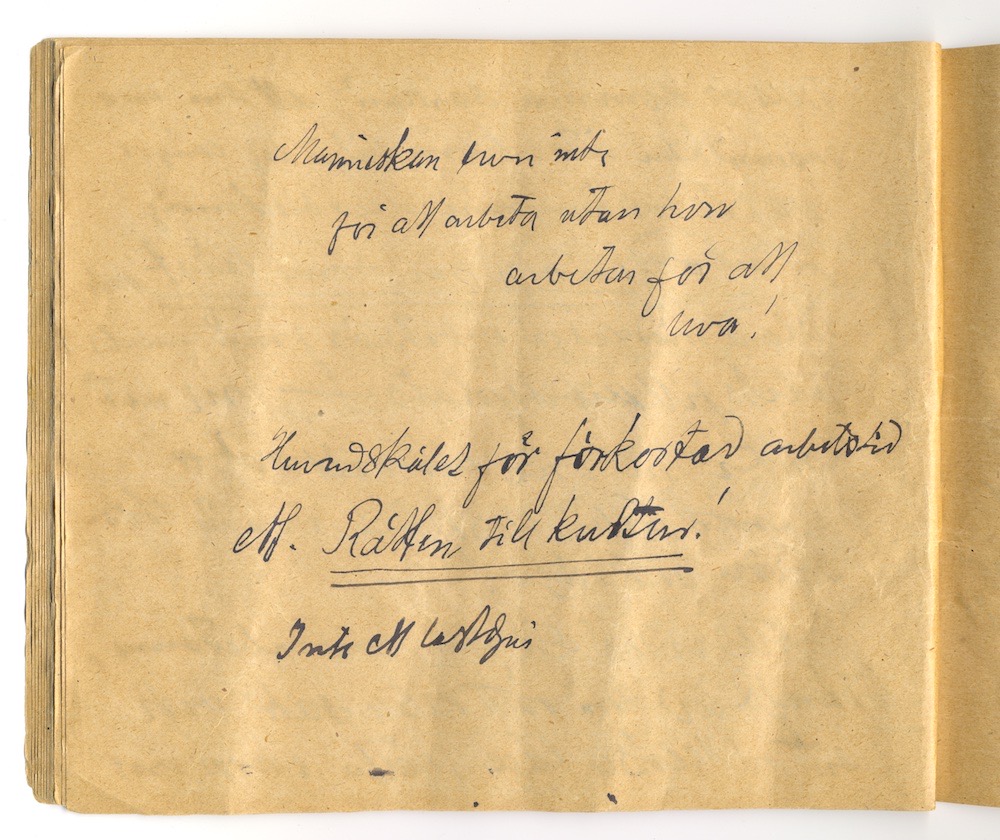 Människan lever inte
för att arbeta utan hon
arbetar för att
leva!
Huvudskälet för förkortad arbetstid
ett. Rätten till kultur!
Inte ett lastdjur